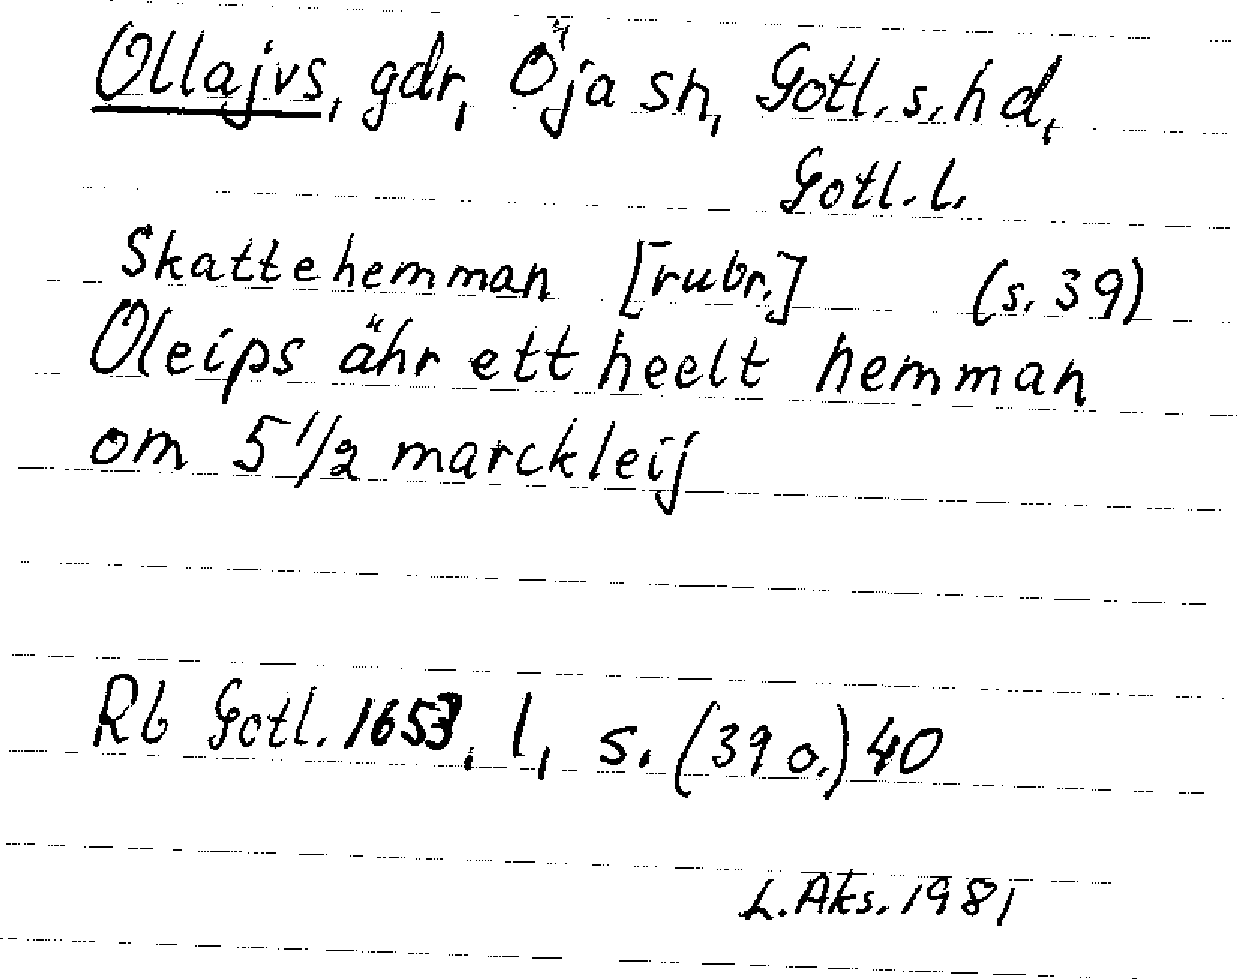 Ollajvs, gdr, Öja sn, Gotl. s. hd,
Gotl. l.
Skattehemman [rubr.] (s. 39)
Oleips ähr ett heelt hemman
om 5 1/2 marckleij
Rb Gotl. 1653, l, s. (39 o.) 40
L. Aks. 1981